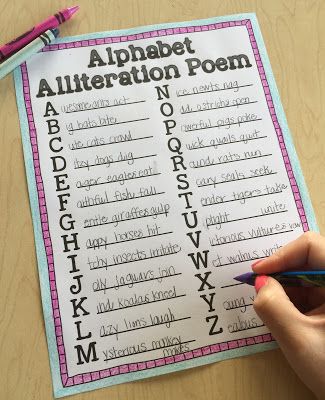 Alphabet
Alliteration Poem
Awesome ants act
Big bats bite
Cute cats crawl
Ditzy dogs dug
Eager eagles eat
Faithful fish fall
Gentle giraffes gulp
Happy horses hit
Itchy insects irritate
Jolly jaguars join
Kind koalas kneel
Lazy lions laugh
Mysterious monkey
makes
Nice newts nag
Odd ostrichs open
Powerful pigs poke
Quick quails quit
Round rats run
Scary seals seek
Tender tigers take
Upright unite
Victorious vultures vow
Wet walrus write
X
Young
Zealous